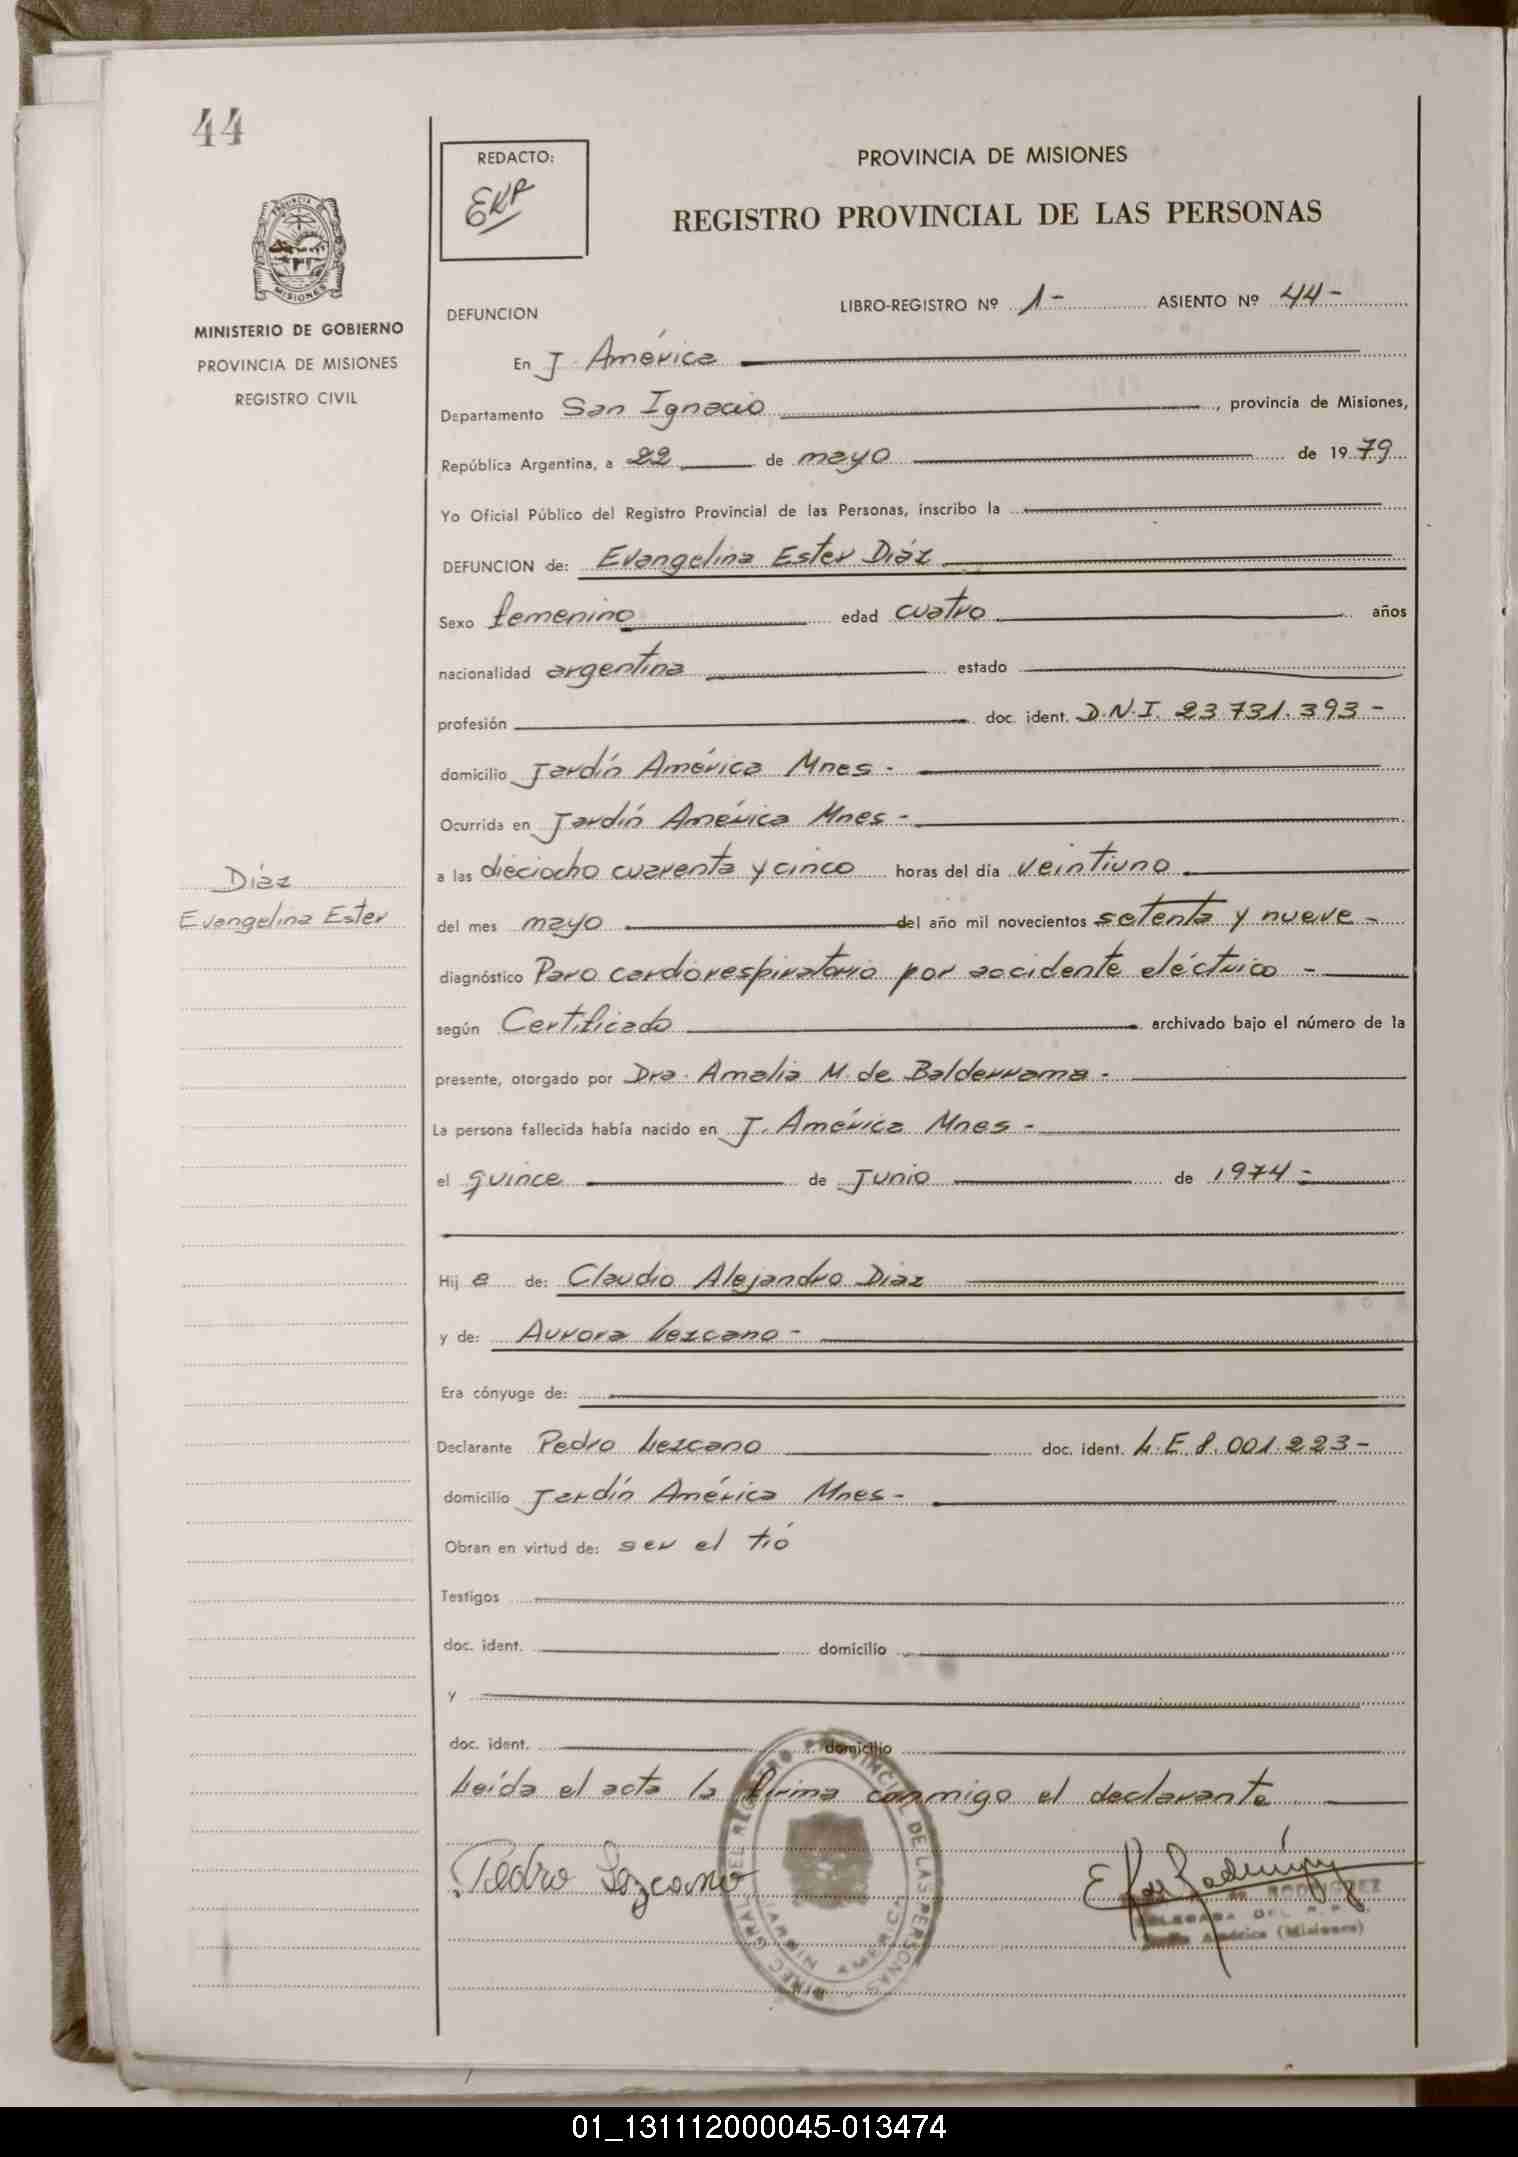 44
REDACTO:
EKR
PROVINCIA DE MISIONES
REGISTRO PROVINCIAL DE LAS PERSONAS
MISIONES
MINISTERIO DE GOBIERNO
PROVINCIA DE MISIONES
REGISTRO CIVIL
DEFUNCION
LIBRO-REGISTRO Nº 1- ASIENTO Nº 44-
En J. América
Departamento San Ignacio, provincia de Misiones,
República Argentina, a 22 de mayo de 1979
Yo Oficial Público del Registro Provincial de las Personas, inscribo la
DEFUNCION de: Evangelina Ester Diáz
Sexo femenino edad cuatro años
nacionalidad argentina estado
profesión doc. ident. D.N.I. 23.731.393-
domicilio Jardín América Mnes-
Ocurrida en Jardín América Mnes-
a las dieciocho cuarenta y cinco horas del día veintiuno
Diáz
Evangelina Ester
del mes mayo del año mil novecientos setenta y nueve-
diagnóstico Paro cardiorespiratorio por accidente eléctrico-
según Certificado archivado bajo el número de la
presente, otorgado por Dra. Amalia M. de Balderrama-
La persona fallecida había nacido en J. América Mnes-
el quince de Junio de 1974-
Hij a de: Claudio Alejandro Diaz
y de: Aurora Lezcano-
Era cónyuge de:
Declarante Pedro Lezcano doc. ident. L.E 8.001.223-
domicilio Jardín América Mnes-
Obran en virtud de: ser el tió
Testigos
doc. ident. domicilio
y
doc. ident. domicilio
Leída el acta la firma conmigo el declarante
Pedro Lezcano
DIREC. GRAL. DEL REGISTRO PROVINCIAL DE LAS PERSONAS
JARDIN AMERICA
RODRIGUEZ
DELEGADA DEL R.P.P.
Jardín América (Misiones)
01_131112000045-013474